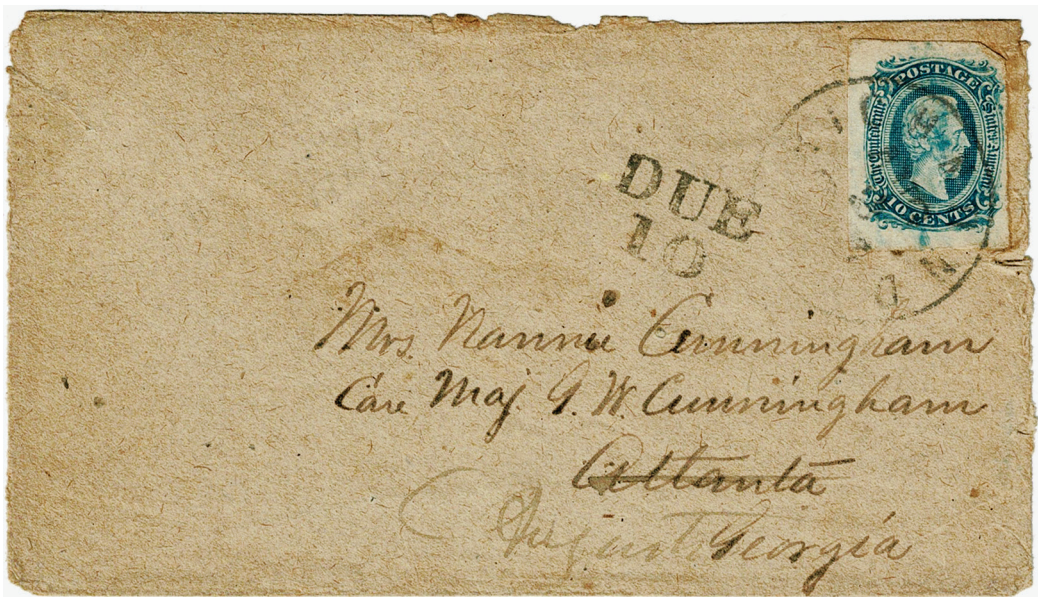 POSTAGE
The Confederate States of America
10 CENTS
DUE
10
Mrs. Nannie Cunningham
Care Maj. G. W. Cunningham
Atlanta
Augusta Georgia